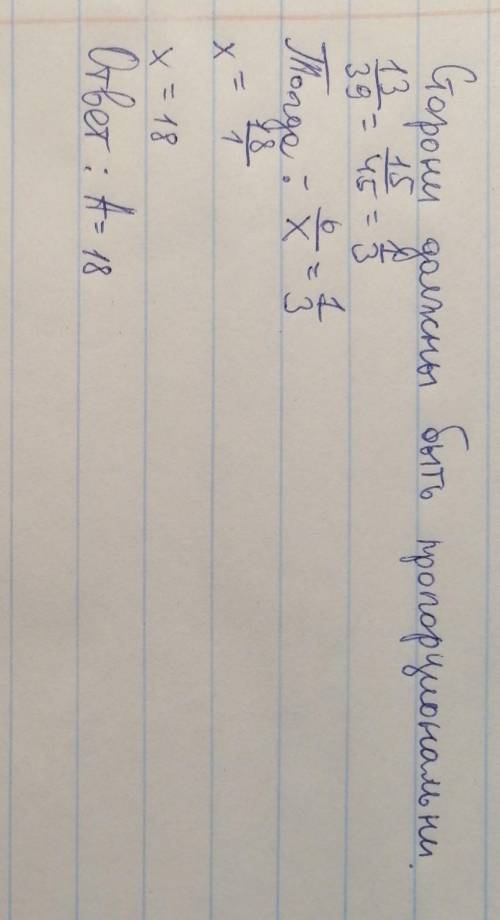 Стороны должны быть пропорциональны.
13/39 = 15/45 = 1/3
Тогда: 6/x = 1/3
x = 18/1
x = 18
Ответ: A = 18